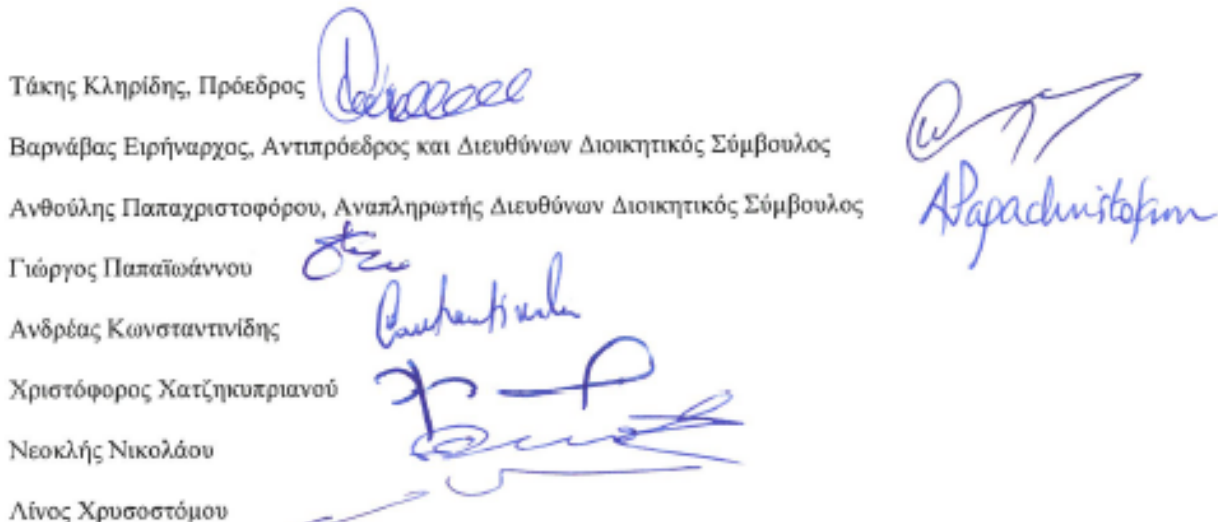 Τάκης Κληρίδης, Πρόεδρος
Βαρνάβας Ειρήναρχος, Αντιπρόεδρος και Διευθύνων Διοικητικός Σύμβουλος
Ανθούλης Παπαχριστοφόρου, Αναπληρωτής Διευθύνων Διοικητικός Σύμβουλος
APapachristoforou
Γιώργος Παπαϊωάννου
Ανδρέας Κωνσταντινίδης
Χριστόφορος Χατζηκυπριανού
Νεοκλής Νικολάου
Λίνος Χρυσοστόμου